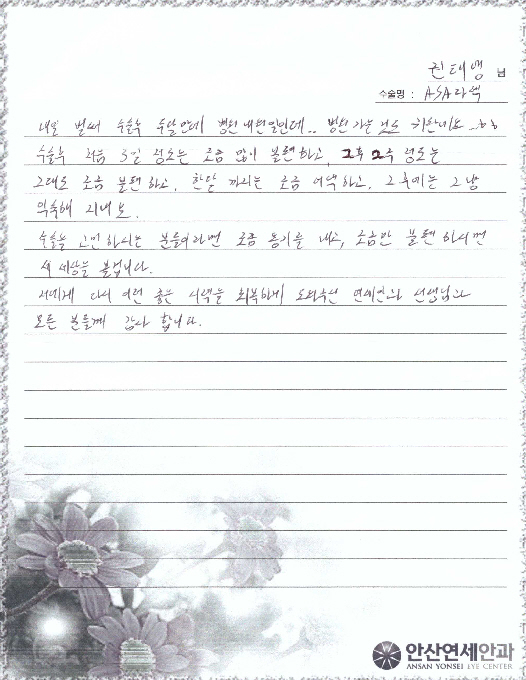 권태행 님
수술명 : ASA라섹
내일 벌써 수술후 두달만에 병원 내원일인데.. 병원 가는 것도 귀찮네요 ..^^
수술후 처음 3일 정도는 조금 많이 불편하고, 그후 2주 정도는
그래도 조금 불편하고, 한달 까지는 조금 어색하고, 그 후에는 그냥
익숙해 지네요.
수술을 고민하시는 분들이라면 조금 용기를 내고, 조금만 불편하시면
새 세상을 볼겁니다.
저에게 다시 이런 좋은 시력을 회복하게 도와주신 연세안과 선생님과
모든 분들께 감사 합니다.
안산연세안과
ANSAN YONSEI EYE CENTER